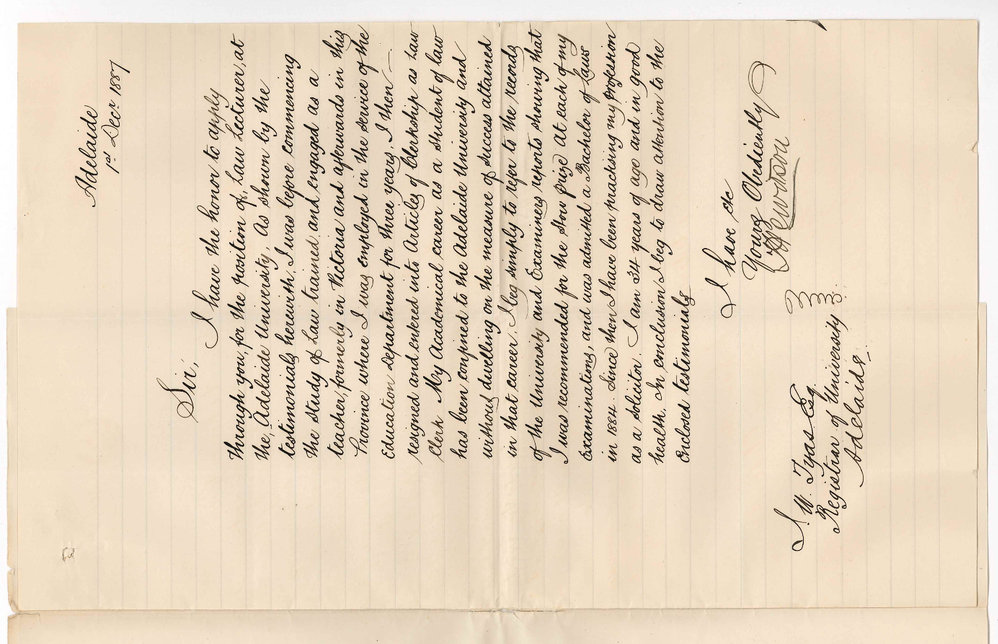 Adelaide
1st Decr 1887
Sir,
I have the honor to apply
through you, for the position of Law Lecturer, at
the Adelaide University. As shown by the
testimonials herewith I was before commencing
the study of Law trained and engaged as a
teacher, formerly in Victoria and afterwards in this
Province where I was employed in the service of the
Education Department for three years. I then
resigned and entered into Articles of Clerkship as Law
Clerk My Academical career as a student of law
has been confined to the Adelaide University and
without dwelling on the measure of success attained
in that career I beg simply to refer to the records
of the University and Examiners reports showing that
I was recommended for the Stow prize at each of my
Examinations, and was admitted a Bachelor of Laws
in 1884. Since then I have been practising my profession
as a solicitor. I am 34 years of age and in good
health. In conclusion I beg to draw attention to the
Enclosed testimonials
I have &c
Yours Obediently
Hewitson
J. W. Tyas Esq
Registrar of University
Adelaide